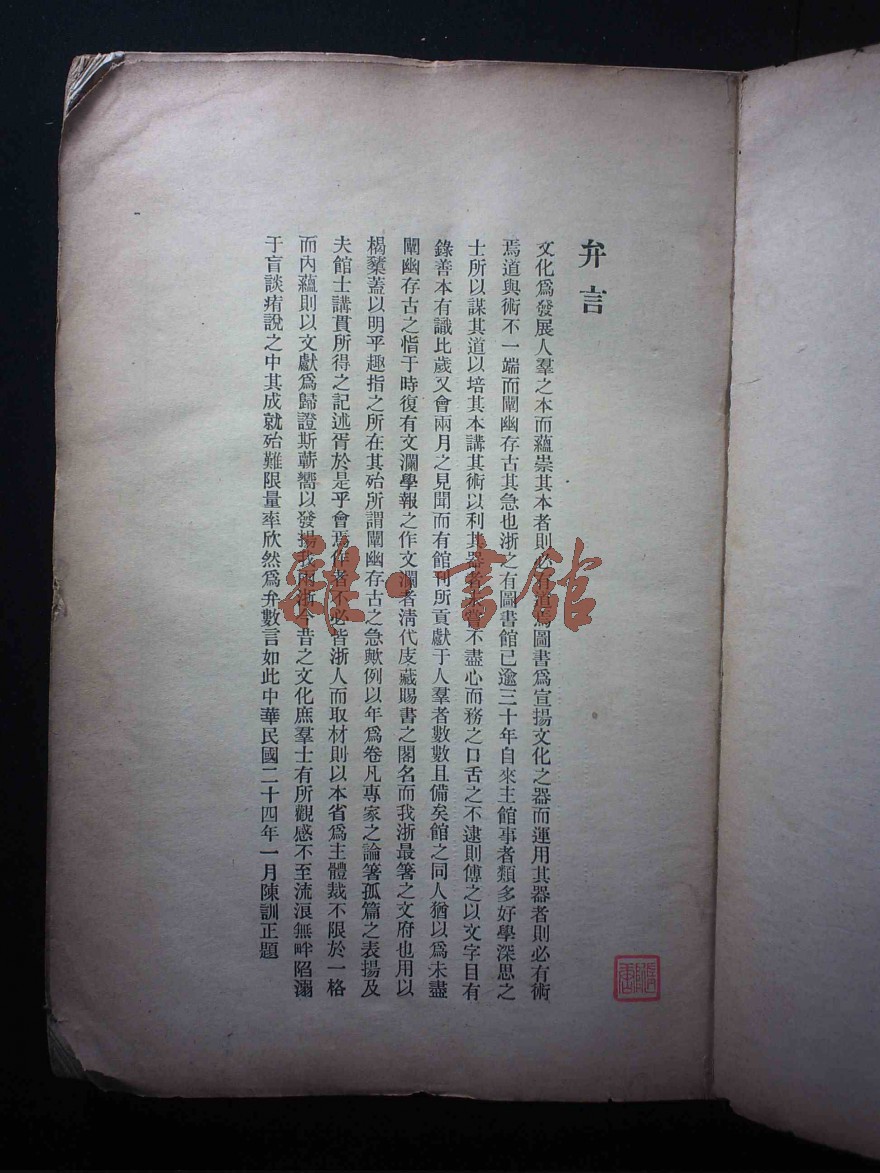 弁言
文化爲發展人羣之本而蘊崇其本者則必有道焉圖書爲宣揚文化之器而運用其器者則必有術
焉道與術不一端而闡幽存古其急也浙之有圖書館已逾三十年自來主館事者類多好學深思之
士所以謀其道以培其本講其術以利其器者未嘗不盡心而務之口舌之不逮則傅之以文字目有
錄善本有識比歲又會兩月之見聞而有館刊所貢獻于人羣者數數且備矣館之同人猶以爲未盡
闡幽存古之恉于時復有文瀾學報之作文瀾者淸代庋藏賜書之閣名而我浙最箸之文府也用以
楬櫫蓋以明乎趣指之所在其殆所謂闡幽存古之急歟例以年爲卷凡專家之論箸孤篇之表揚及
夫館士講貫所得之記述胥於是乎會焉作者不必皆浙人而取材則以本省爲主體裁不限於一格
而內蘊則以文獻爲歸證斯蘄嚮以發揚我兩浙今昔之文化庶羣士有所觀感不至流浪無畔陷溺
于盲談瘏說之中其成就殆難限量率欣然爲弁數言如此中華民國二十四年一月陳訓正題
雜·書館